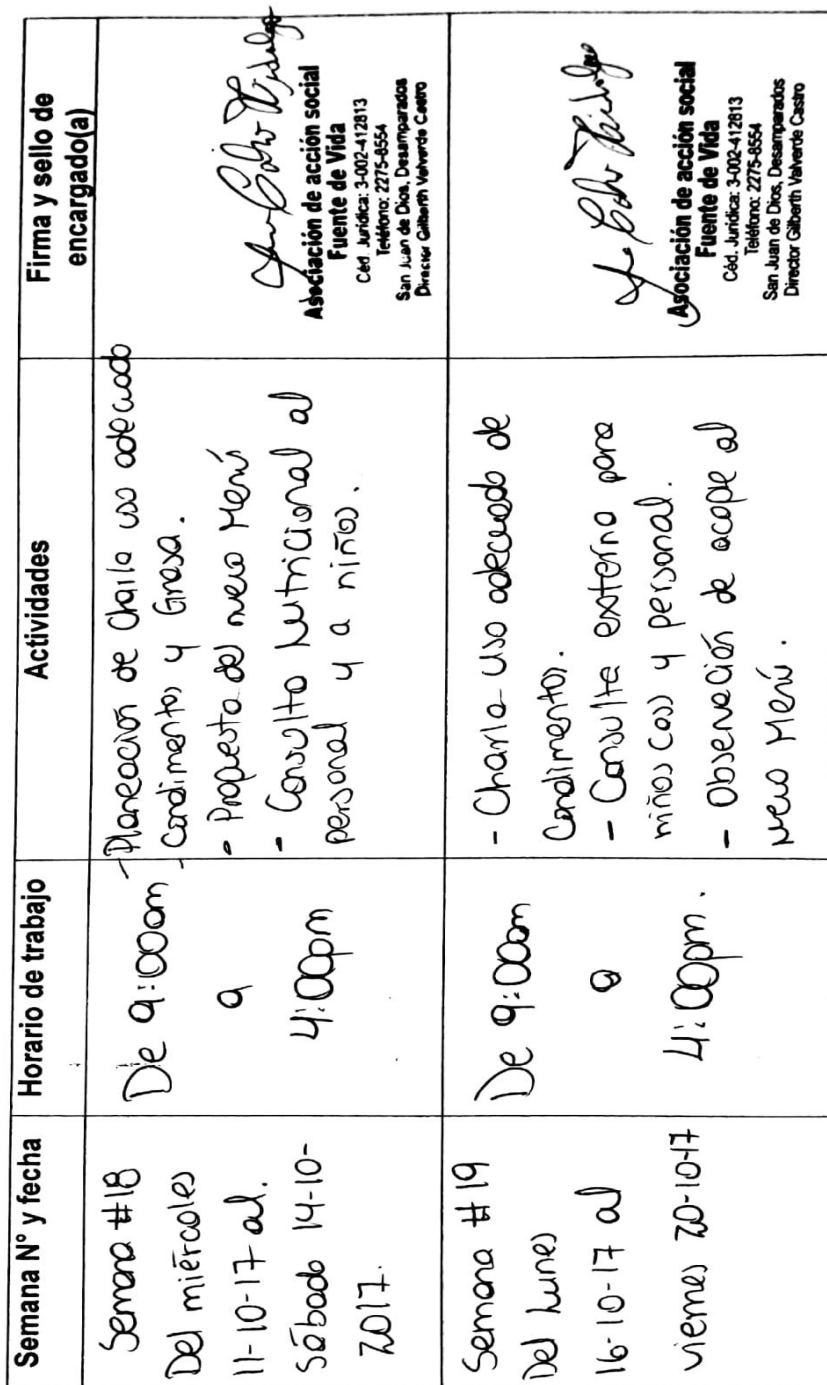 Semana N° y fecha
Horario de trabajo
Actividades
Firma y sello de
encargado(a)
Semana #18
Del miércoles
11-10-17 al.
Sábado 14-10-
2017.
De 9:00am
a
4:00pm
- Planeación de Charla uso adecuado
- Condimentos y Grasa.
- Propuesta del nuevo Menú
- Consulta Nutricional al
personal y a niños.
Calvo Hidalgo
Asociación de acción social
Fuente de Vida
Céd. Jurídica: 3-002-412813
Teléfono: 2275-8554
San Juan de Dios, Desamparados
Director Gilberth Valverde Castro
Semana #19
Del Lunes
16-10-17 al
viernes 20-10-17
De 9:00am
a
4:00pm.
- Charla Uso adecuado de
Condimentos.
- Consulta externa para
niños (as) y personal.
- Observación de acople al
nuevo Menú.
Calvo Hidalgo
Asociación de acción social
Fuente de Vida
Céd. Jurídica: 3-002-412813
Teléfono: 2275-8554
San Juan de Dios, Desamparados
Director Gilberth Valverde Castro